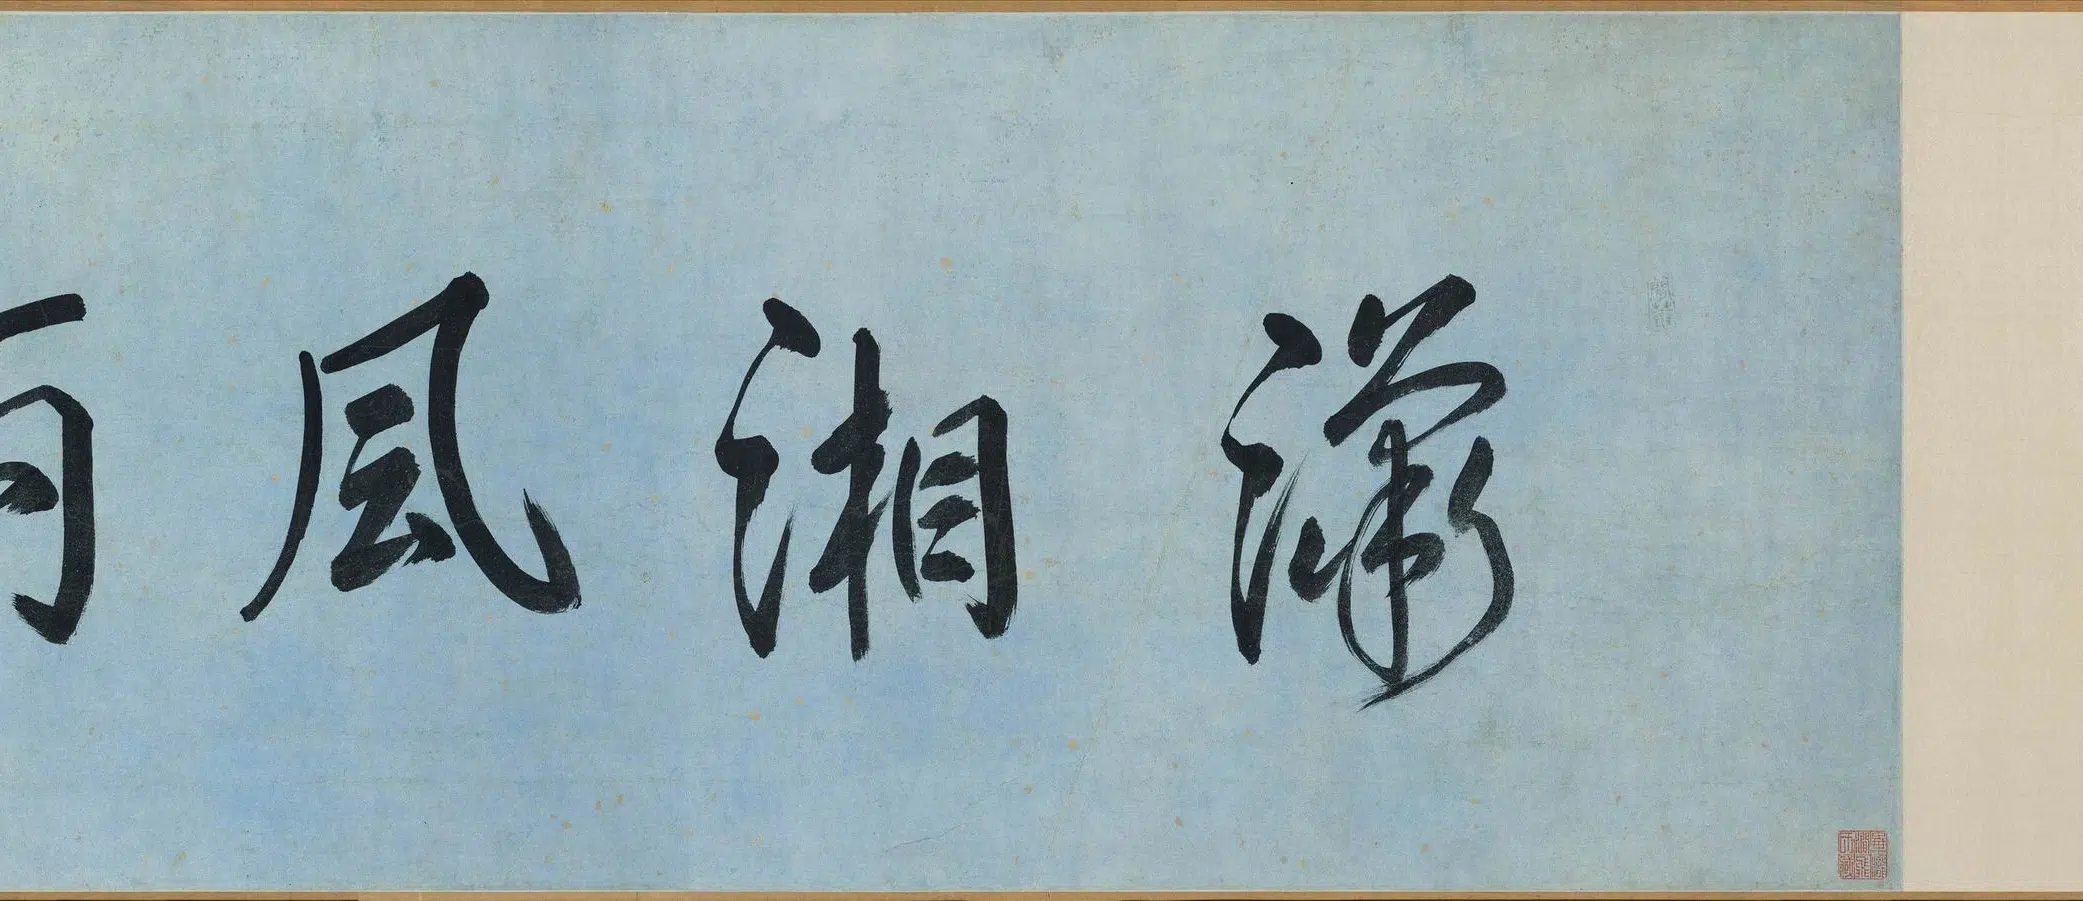 瀟湘風雨